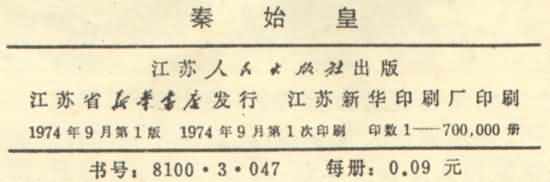 秦始皇
江苏人民出版社出版
江苏省新华书店发行 江苏新华印刷厂印刷
1974年9月第1版 1974年9月第1次印刷 印数1—700,000册
书号：8100·3·047 每册：0.09元